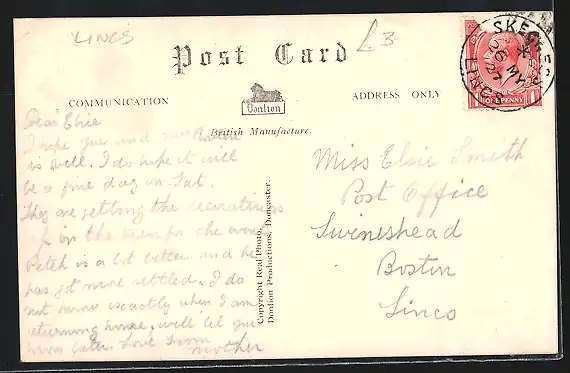 LINCS
£3
Post Card
SKEGNESS
LINCS
ONE PENNY
COMMUNICATION
ADDRESS ONLY
Donlion
British Manufacture.
Dear Elsie
I hope you and
is well. I do hope it will
be a fine day on Sat.
They are getting the decorations
up in the town for the
Peter is a lot better and he
has got more settled. I do
not exactly when I am
returning home, will let you
later. Love from
mother
Copyright Real Photo.
Donlion Productions, Doncaster.
Miss Elsie Smith
Post Office
Swineshead
Boston
Lincs